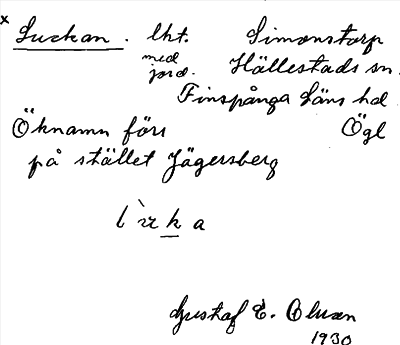 x Luckan. lht. Simonstorp
med jord. Hällestads sn.
Finspånga läns hd
Öknamn förr Ögl
på stället Jägersberg
Gustaf E. Olson
1930